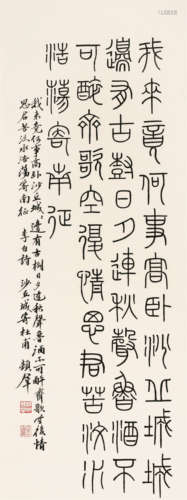 我來竟何事高臥沙丘城城
邊有古樹日夕連秋聲魯酒不
可醉齊歌空復情思君若汶水
浩蕩寄南征
我來竟何事高卧沙丘城〻邊有古樹日夕連秋聲魯酒不可醉齊歌空復情
思君若汶水浩蕩寄南征 李白詩 沙丘城寄杜甫